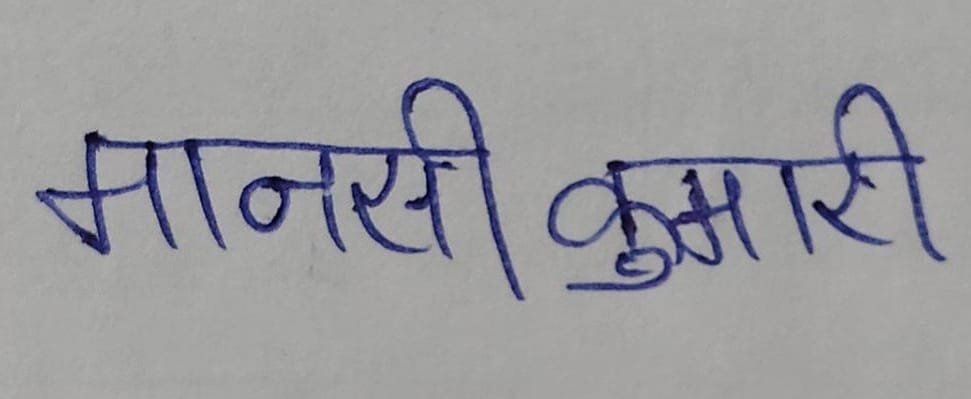 मानसी कुमारी